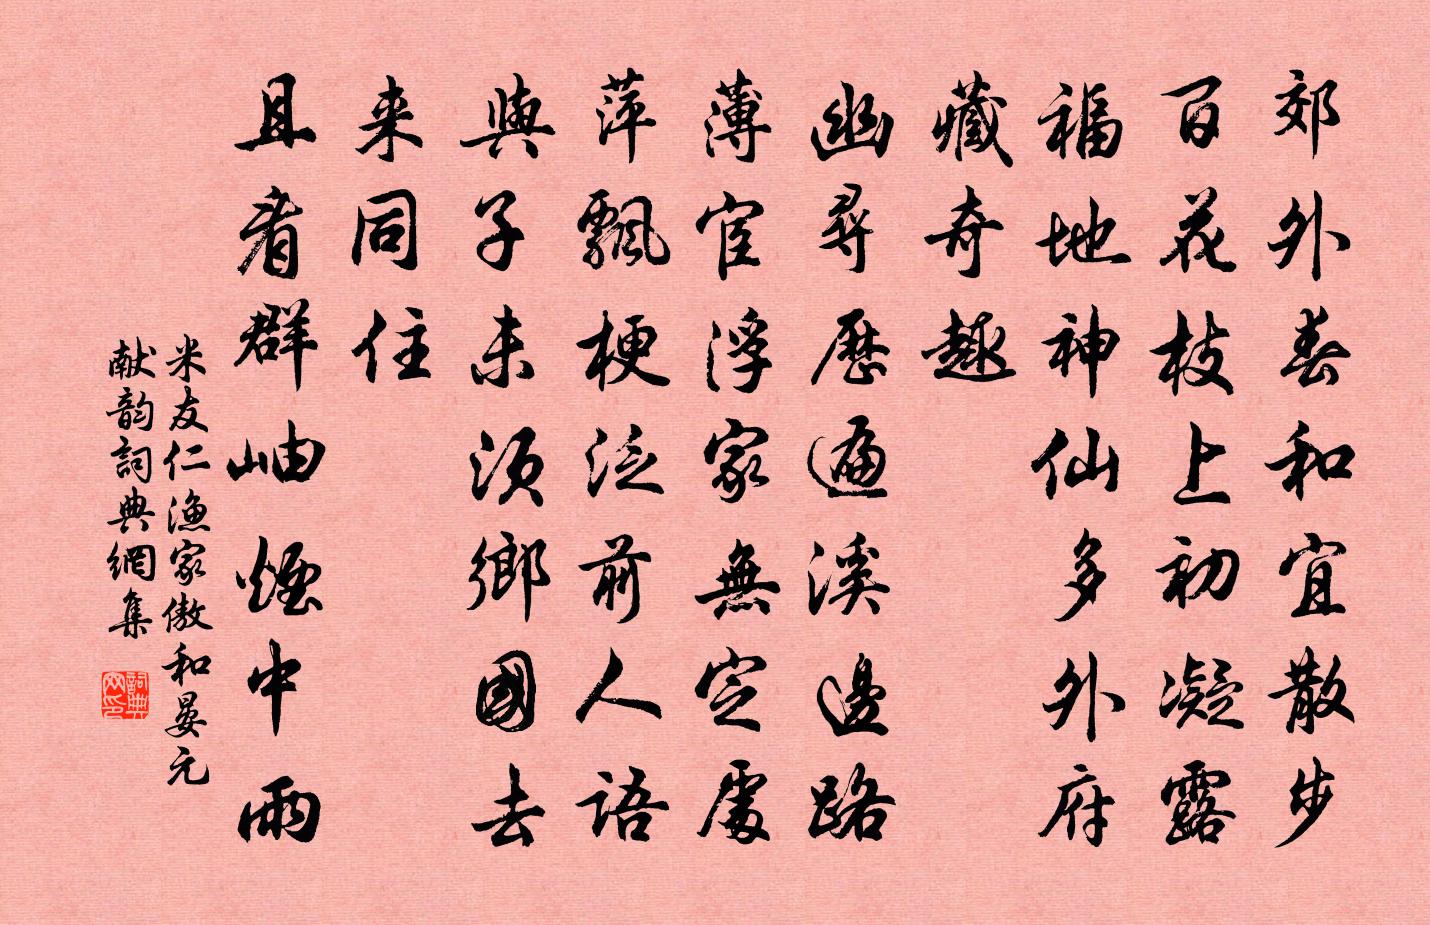 郊外春和宜散步
百花枝上初凝露
福地神仙多外府
藏奇趣
幽尋歷遍溪邊路
薄宦浮家無定處
萍飄梗泛前人語
與子未須鄉國去
来同住
且看群岫煙中雨
米友仁漁家傲和晏元
献韵詞典網集
詞典网印